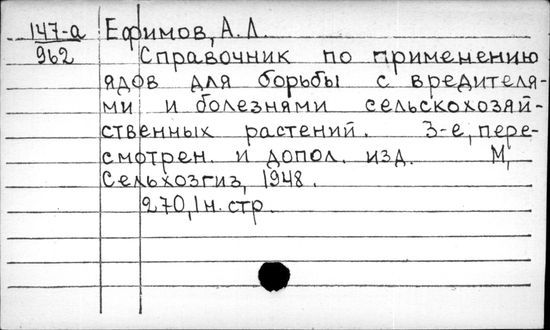 147-а Ефимов, А. Л.
962 Справочник по применению
ядов для борьбы с вредителя-
ми и болезнями сельскохозяй-
ственных растений. 3-е, пере-
смотрен. и допол. изд. М,
Сельхозгиз, 1948.
270, 1 н. стр.